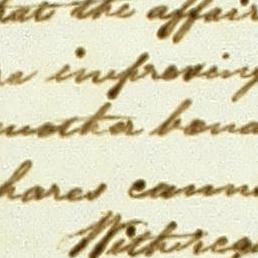 hat the affair
re improving
another bond
hares cann
With rega